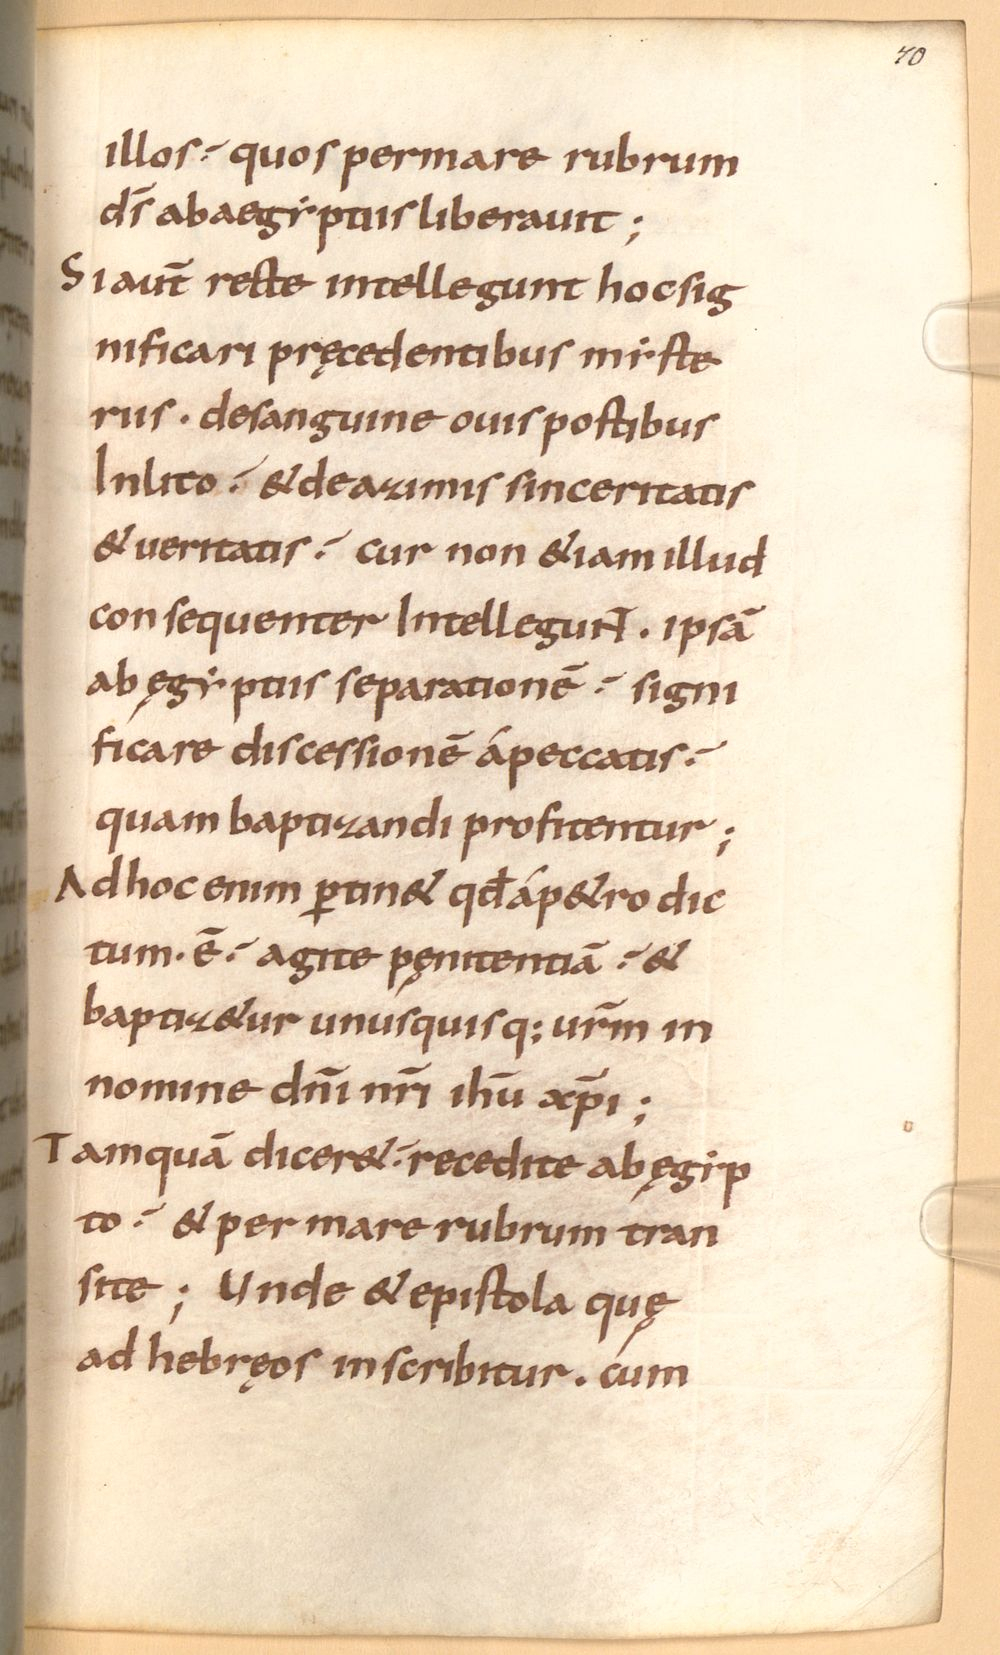 70
illos: quos per mare rubrum
dſ̄ ab aegyptiis liberauit;
Si aut̄ recte intellegunt hoc sig
nificari pręcedentibus myste
riis. de sanguine ouis postibus
Inlito: & de azimis sinceritatis
& ueritatis: cur non &iam illud
consequenter Intellegunt̄. ipsā
ab ęgyptiis separationē: signi
ficare discessionē á peccatis:
quam baptizandi profitentur;
Ad hoc enim ꝑtin& qđ á p&ro dic
tum. ē: agite pęnitentiā: &
baptiz&ur unusquisq; ur̄m in
nomine dn̄i nr̄i ihū xp̄i;
Tamquā dicer&: recedite ab ęgyp
to: & per mare rubrum tran
site; Unde & epistola quę
ad hebręos inscribitur. cum